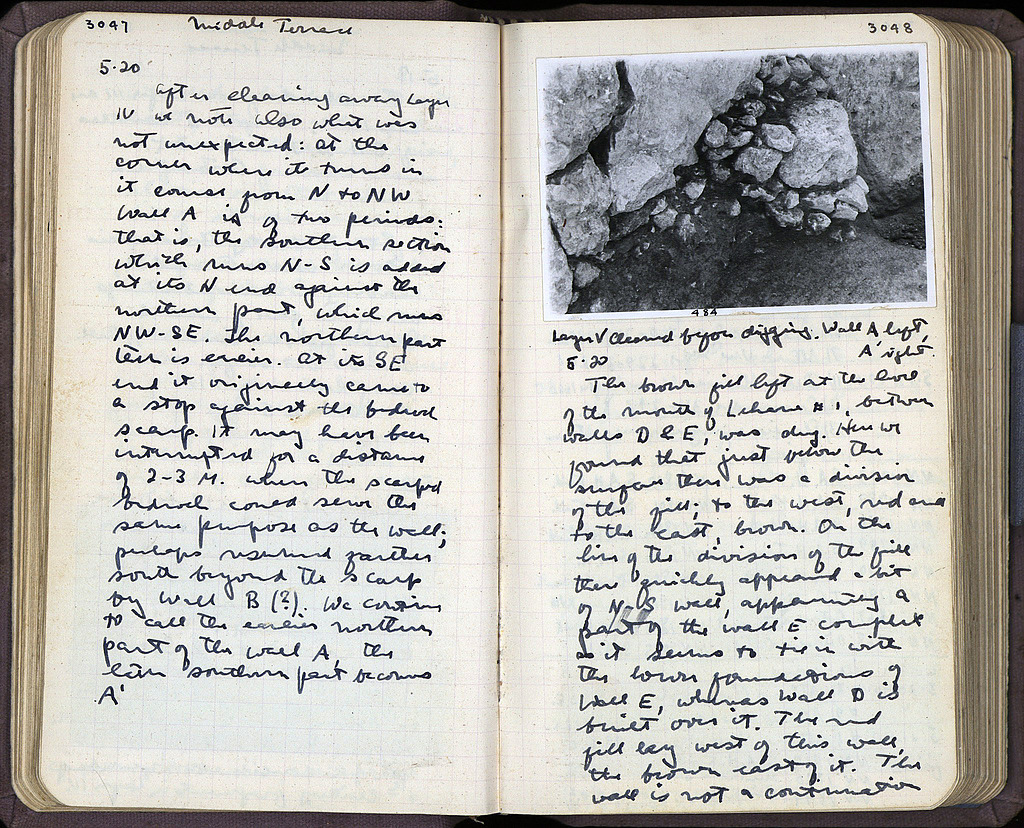 3047
Middle Terrace
5.20
After cleaning away Layer
IV we note also what was
not unexpected: at the
corner where it turns in
it comes from N to NW
Wall A is of two periods:
that is, the southern section
which runs N-S is added
at its N end against the
northern part, which runs
NW-SE. The northern part
then is earlier. At its SE
end it originally came to
a stop against the bedrock
scarp. It may have been
interrupted for a distance
of 2-3 M. where the scarped
bedrock could serve the
same purpose as the wall;
perhaps resumed farther
south beyond the scarp
by Wall B (?). We continue
to call the earlier northern
part of the wall A, the
later southern part becomes
A'
3048
484
Layer V cleaned before digging. Wall A left,
A' right.
5.20
The brown fill left at the level
of the mouth of Lekane #1, between
walls D & E, was dug. Here we
found that just below the
surface there was a division
of the fill; to the west, red and
to the east, brown. On the
line of the division of the fill
there quickly appeared a bit
of N-S wall, apparently a
part of the wall E complex
as it seems to tie in with
the lower foundations of
Wall E, whereas Wall D is
built over it. The red
fill lay west of this wall,
the brown east of it. This
wall is not a continuation